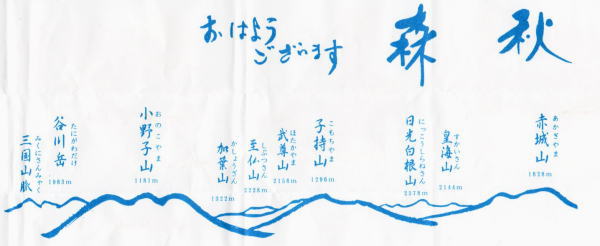 秋
森
おはよう
ございます
赤城山
あかぎやま
1828m
皇海山
すかいさん
2144m
日光白根山
にっこうしらねさん
2578m
子持山
こもちやま
1296m
武尊山
ほたかやま
2158m
至仏山
しぶつさん
2228m
加葉山
かしょうざん
1322m
小野子山
おのこやま
1181m
谷川岳
たにがわだけ
1963m
三国山脈
みくにさんみゃく